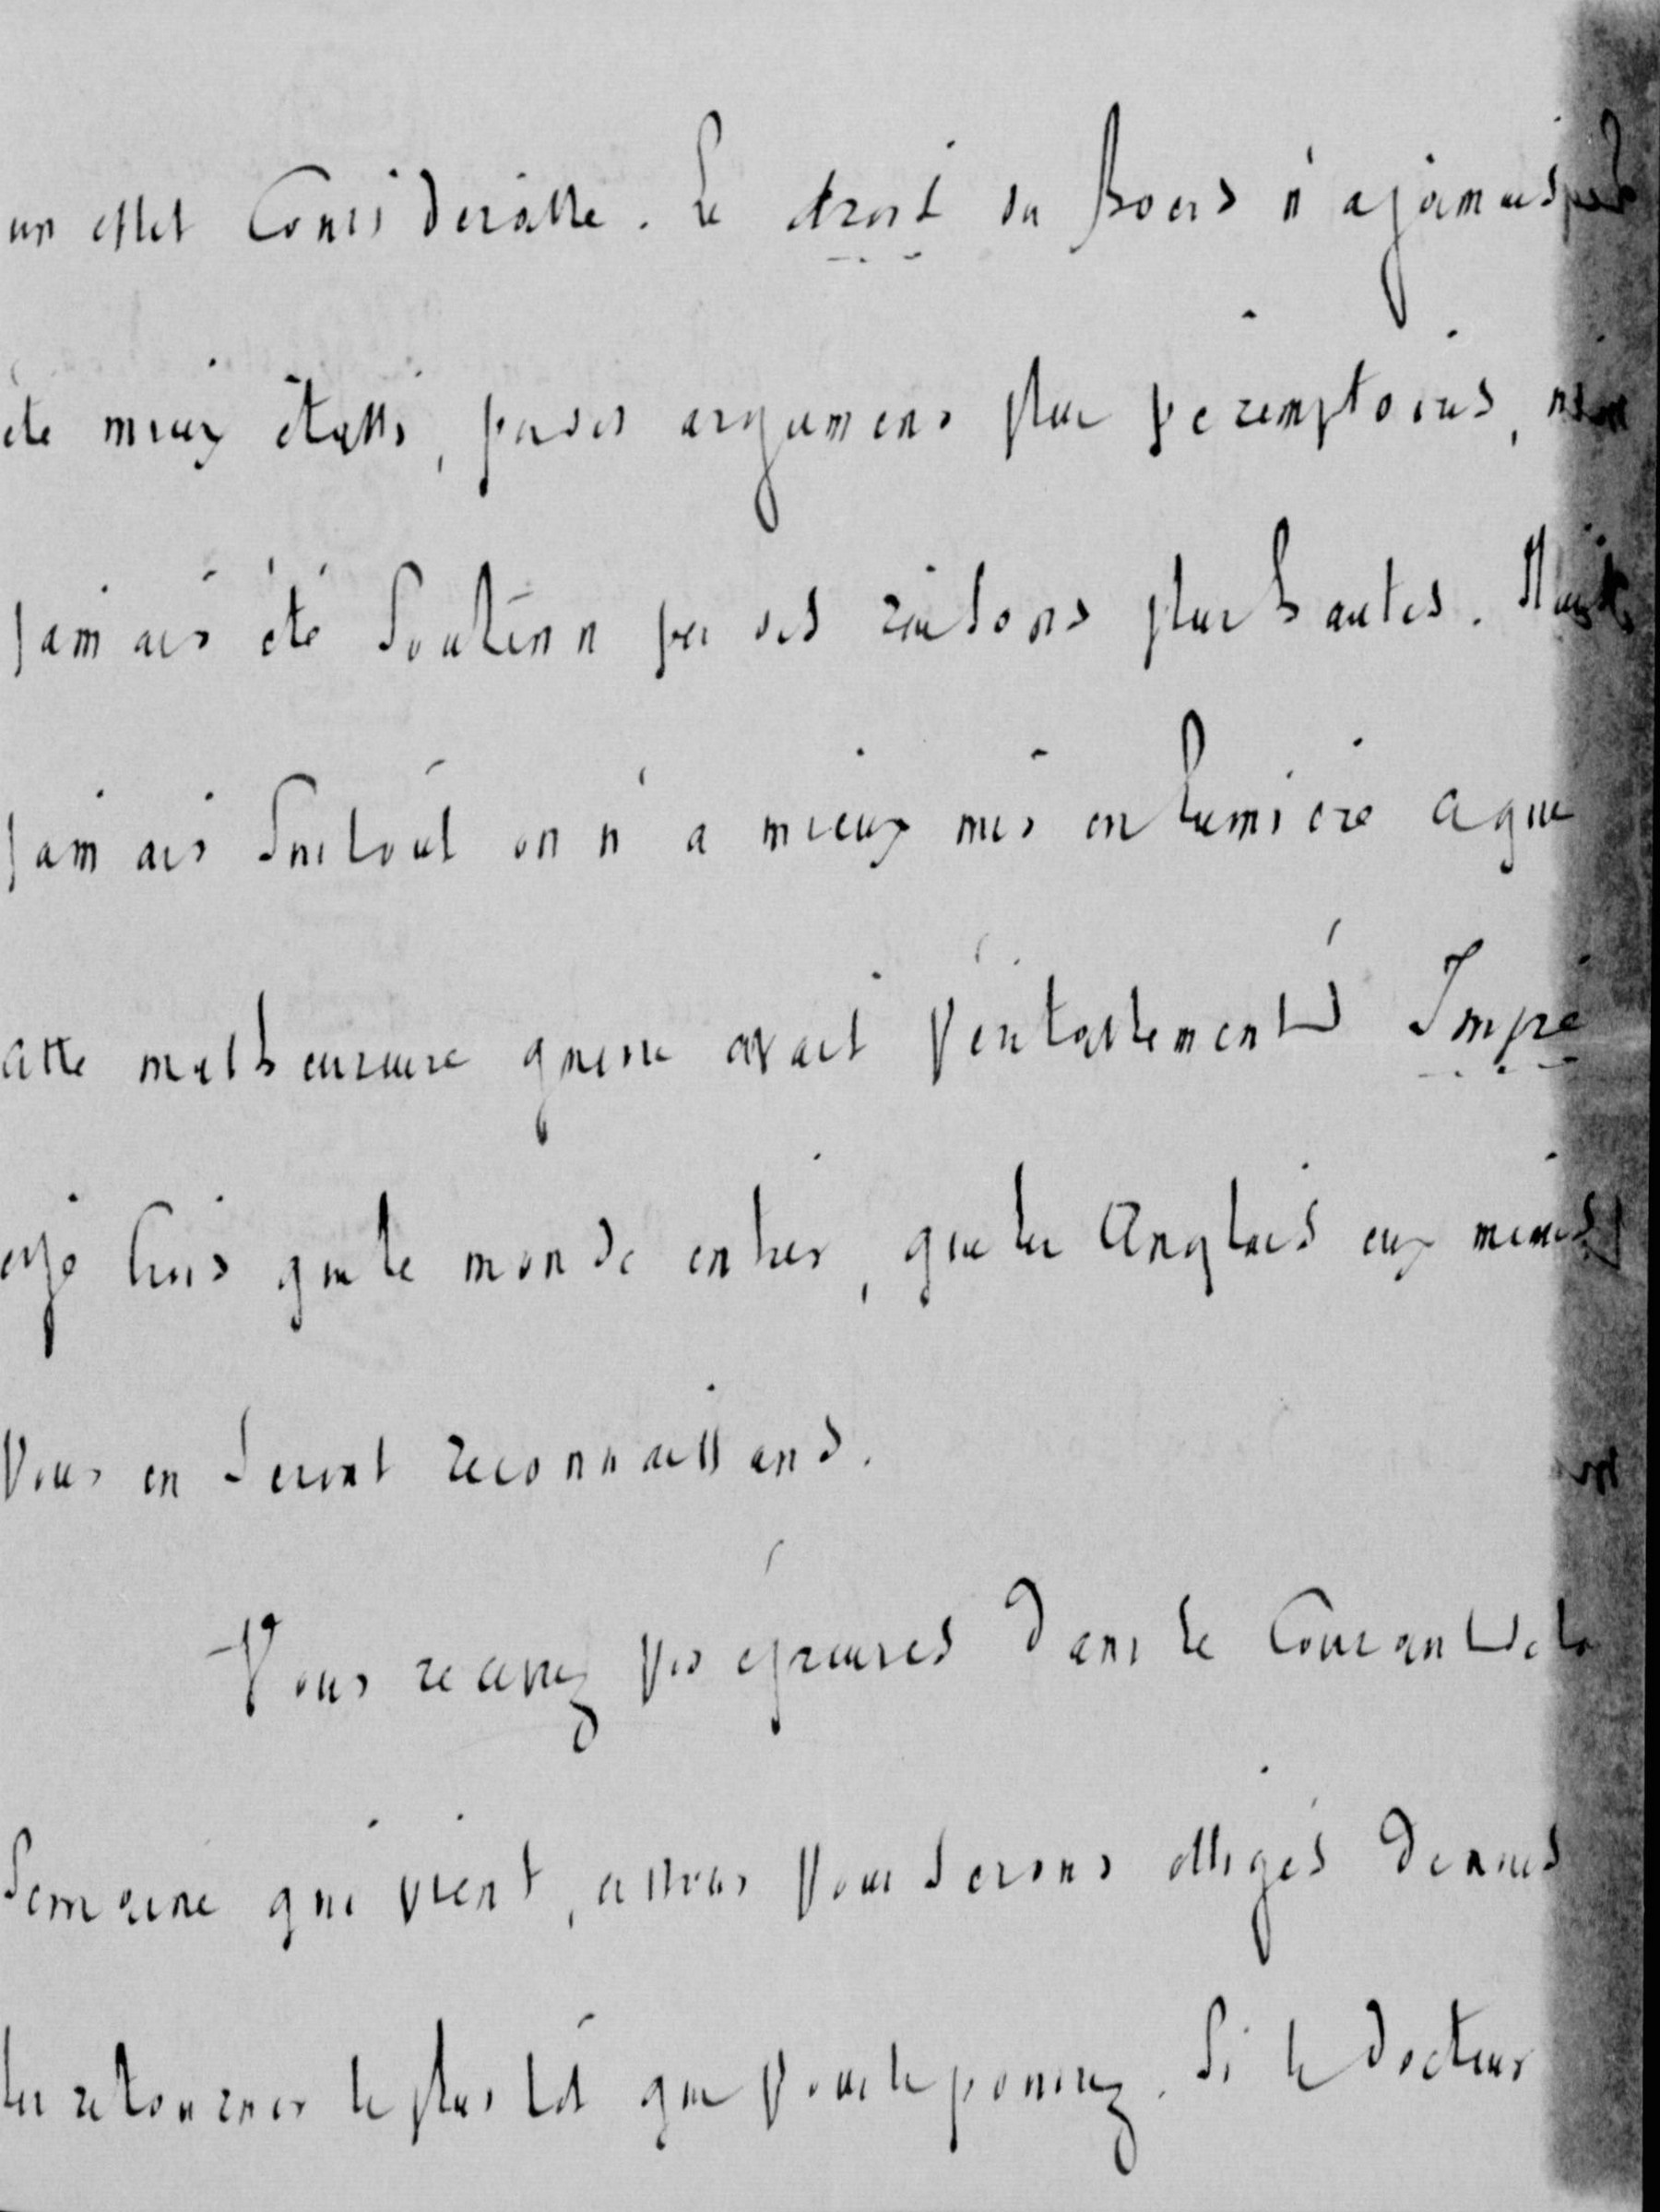 un effet considérable. Le droit du Boers n'a jamais
été mieux établi, par des argumens plus péremptoires, ni
jamais été soutenu par des raisons plus hautes. Mais
jamais surtout on n'a mieux mis en lumière ce que
cette malheureuse guerre avait véritablement d'Impie
et je crois que le monde entier, que les Anglais eux mêmes
vous en seront reconnaissans.
Vous recevrez vos épreuves dans le courant de la
semaine qui vient, et nous vous serons obligés de nous
les retourner le plus tôt que vous le pourrez. Si le docteur